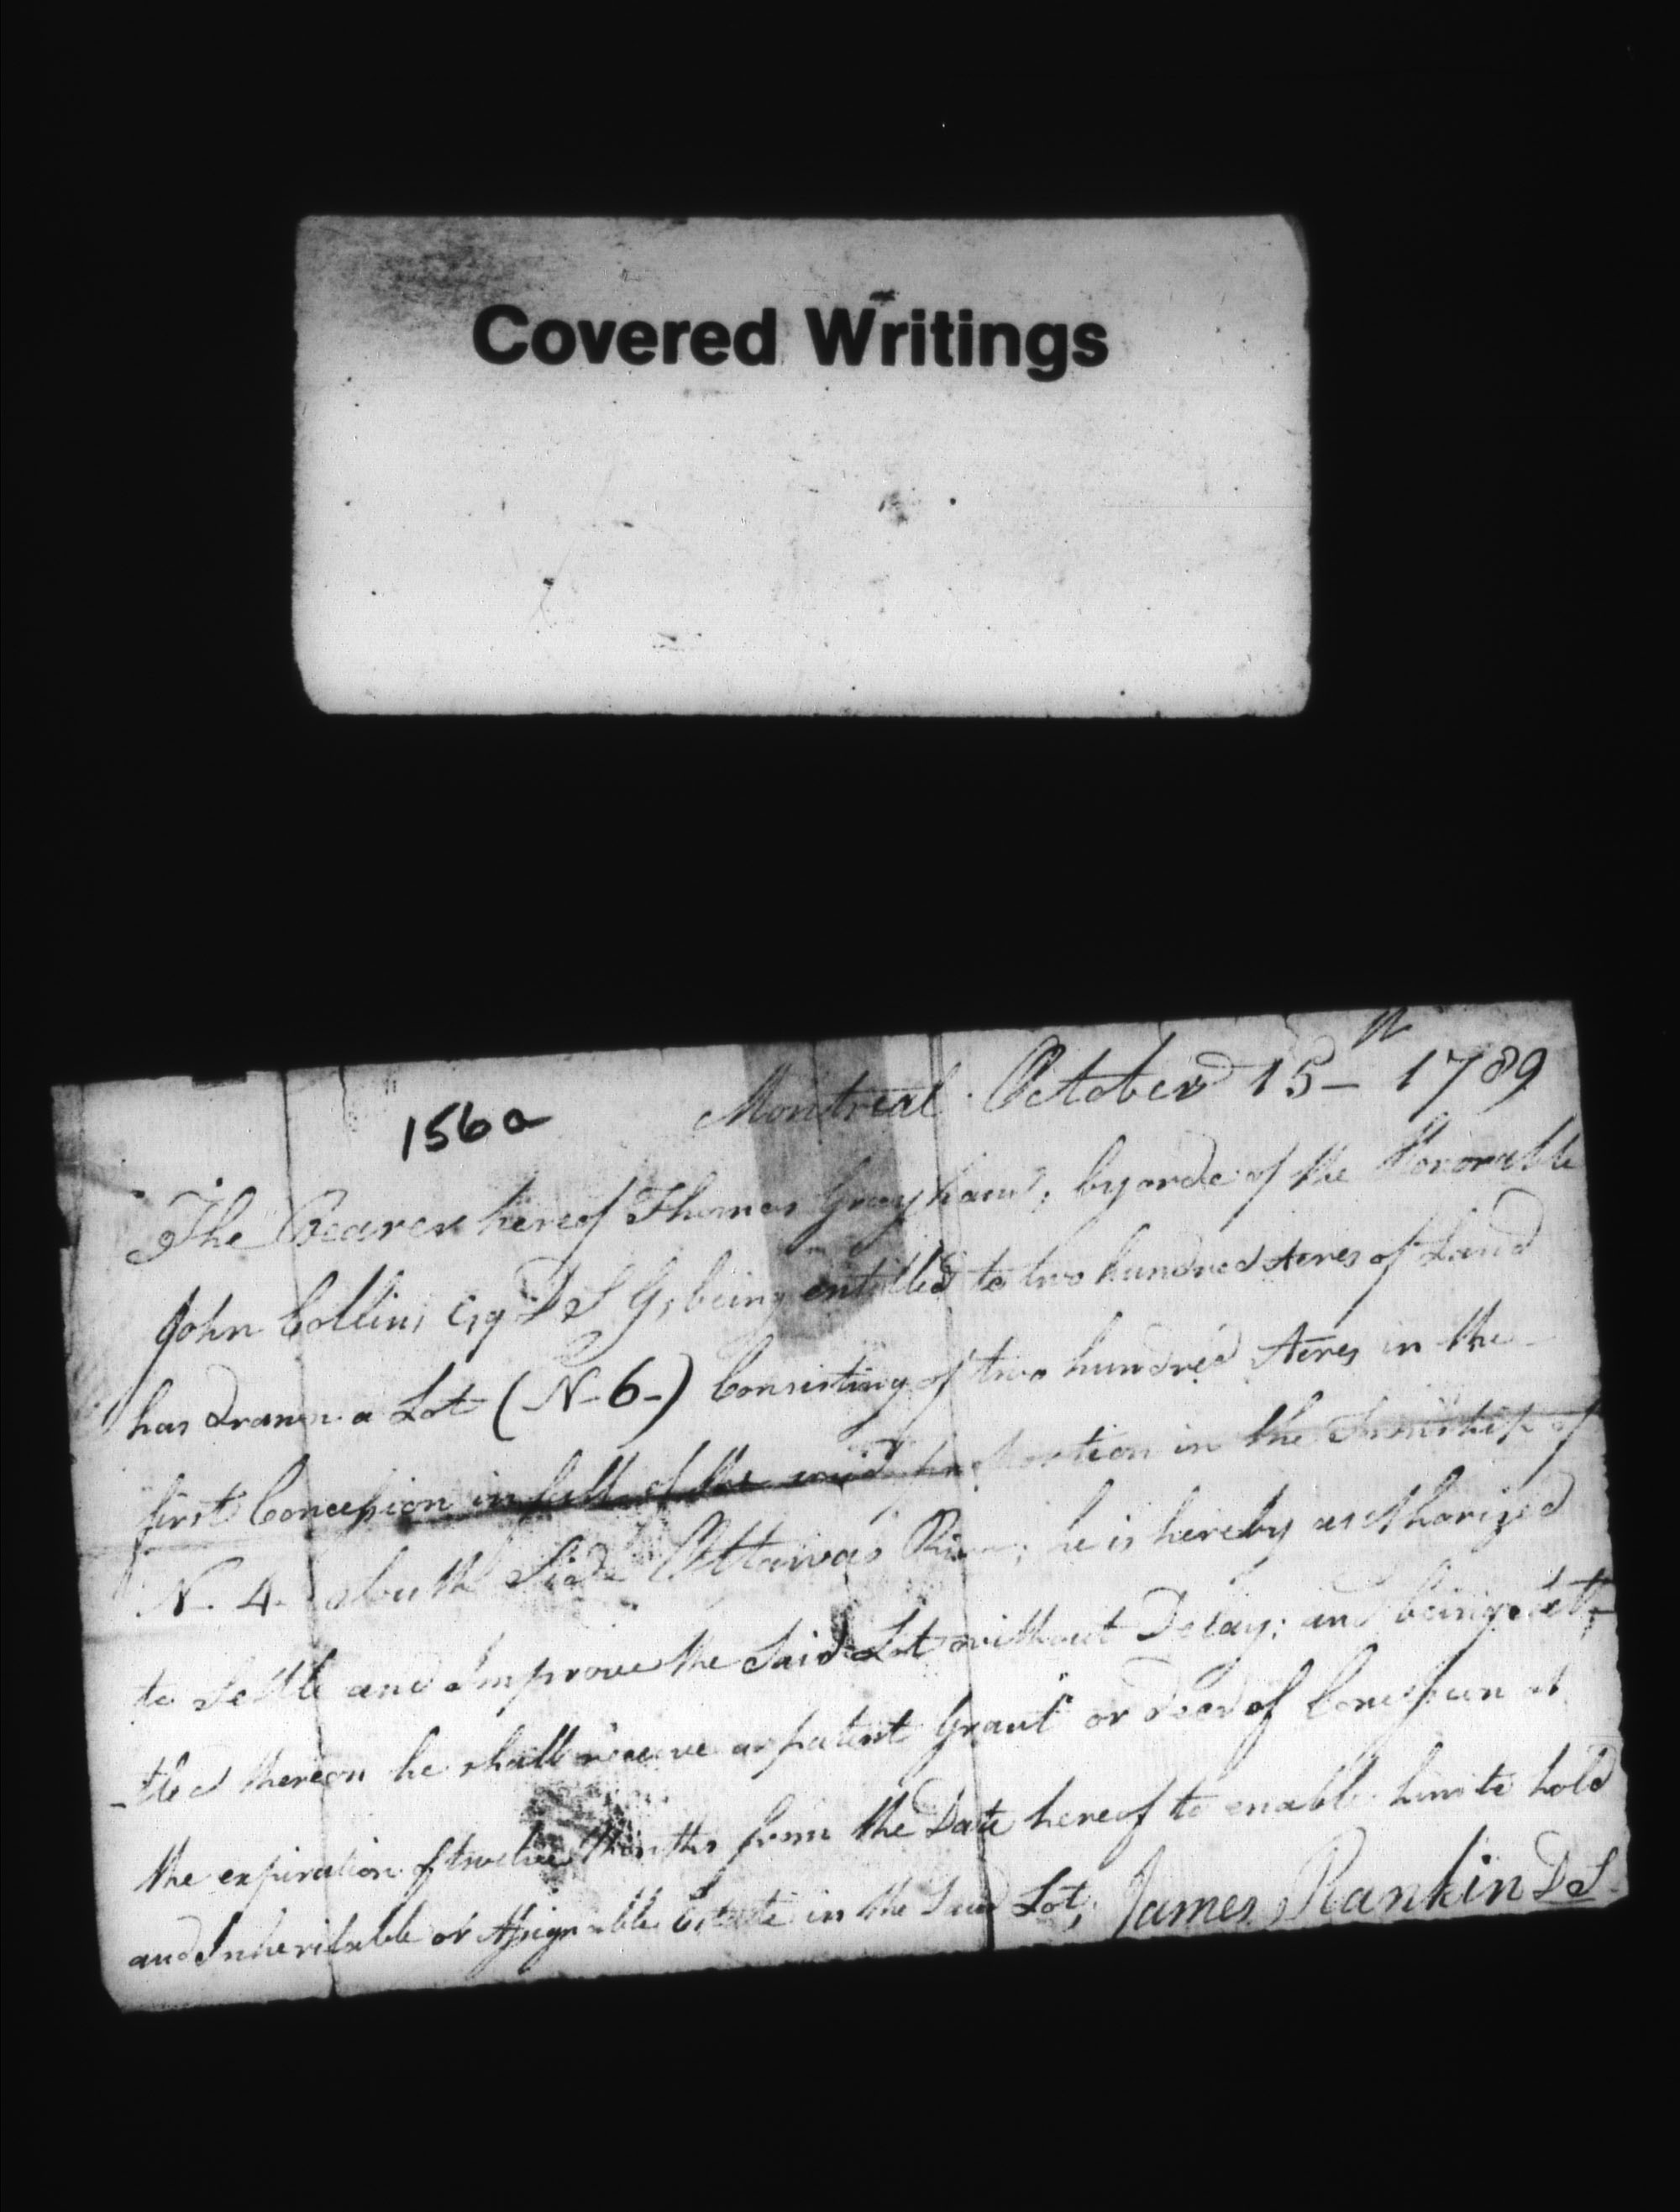 Covered Writings
156a
Montreal October 15th 1789
The Bearer hereof Thomas Grayham, by orde of the Honorable
John Collins Esq D S G, being entitled to two hundred Acres of Land
has drawn a Lot (N-6-) Consisting of two hundred Acres in the
first Concession in full of the said in the Township of
N- 4- South Side Ottawas River; he is hereby authorized
to Settle and Improve the Said Lot without Delay; and being set-
-tled thereon he shall receive a patent Grant or deed of Concession at
the expiration of twelve Months from the Date hereof to enable him to hold
and Inheritable or Assignable Estate in the Said Lot, James Rankin DS